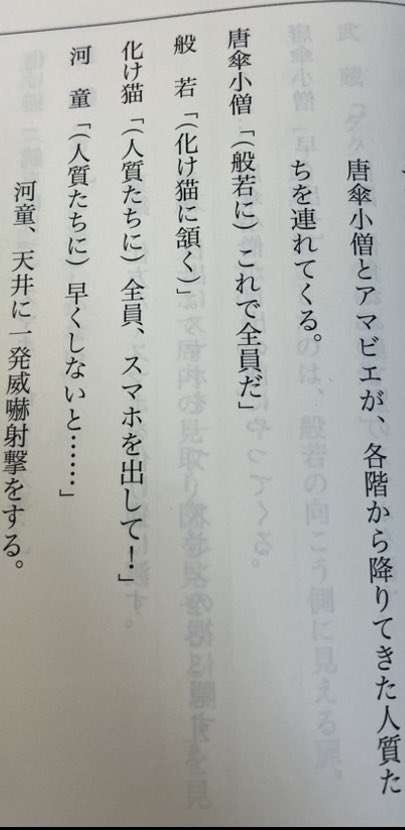 唐傘小僧とアマビエが、各階から降りてきた人質た
ちを連れてくる。
唐傘小僧「（般若に）これで全員だ」
般　若「（化け猫に頷く）」
化け猫「（人質たちに）全員、スマホを出して！」
河　童「（人質たちに）早くしないと……」
河童、天井に一発威嚇射撃をする。